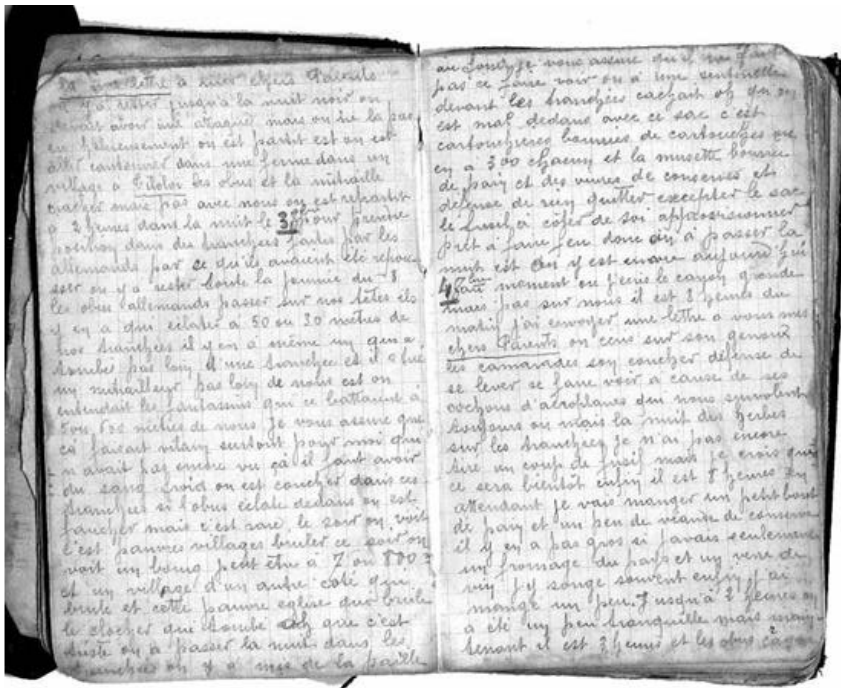 une lettre à mes chers Parents
on y a rester jusqu'à la nuit noir on
devait avoir une attaque mais on ne l'a pas
eu heureusement on est partit est on est
aller cantonner dans une ferme dans un
village à les obus et la mitraille
cracher mais pas avec nous on est repartit
à 2 heures dans la nuit le 3 pour prendre
position dans des tranchées faites par les
allemands par ce qu'ils avaient été repou-
sser on y a rester toute la journée du 3
les obus allemands passer sur nos têtes ils
y en a qui éclater à 50 ou 30 mètres de
nos tranchées il y en a même un qui a
tombé pas loin d'une tranchée et il a tué
un mitrailleur pas loin de nous est on
entendait les fantassins qui ce battaient à
500, 600 mètres de nous je vous assure que
ça faisait vilain surtout pour moi qui
n'avait pas encore vu çà il faut avoir
du sang froid on est coucher dans ces
tranchées si l'obus éclate dedans on est
faucher mais c'est rare, le soir on voit
c'est pauvres villages bruler ce soir on
voit un bourg peut être à 7 ou 800 m
et un village d'un autre coté qui
brule et cette pauvre église qui brule
le clocher qui tombe oh que c'est
triste on à passer la nuit dans les
tranchées on y a mis de la paille
au fond je vous assure qu'il ne faut
pas ce faire voir on à une sentinelle
devant les tranchées cachait oh qu'on
est mal dedans avec ce sac c'est
cartouchières bourrées de cartouches on
en a 300 chacun et la musette bourrée
de pain et des vivres de conserves et
défense de rien quitter excepter le sac
le fusil à côter de soi approvisionner
prêt à faire feu donc on à passer la
nuit est on y est encore aujourd'hui
4 7bre moment ou j'écris le canon gronde
mais pas sur nous il est 8 heures du
matin j'ai envoyer une lettre a vous mes
chers Parents on écris sur son genoux
les camarades son coucher défense de
se lever se faire voir à cause de ses
cochons d'aéroplanes qui nous survolent
toujours on mais la nuit des herbes
sur les tranchées je n'ai pas encore
tiré un coup de fusil mais je crois que
ce sera bientôt enfin il est 8 heures en
attendant je vais manger un petit bout
de pain et un peu de viande de conserve
il y en a pas gros si j'avais seulement
un fromage du pays et un verre de
vin j'y songe souvent enfin j'ai
mangé un peu. Jusqu'à 2 heures on
a été un peu tranquille mais main-
tenant il est 3 heures et les obus